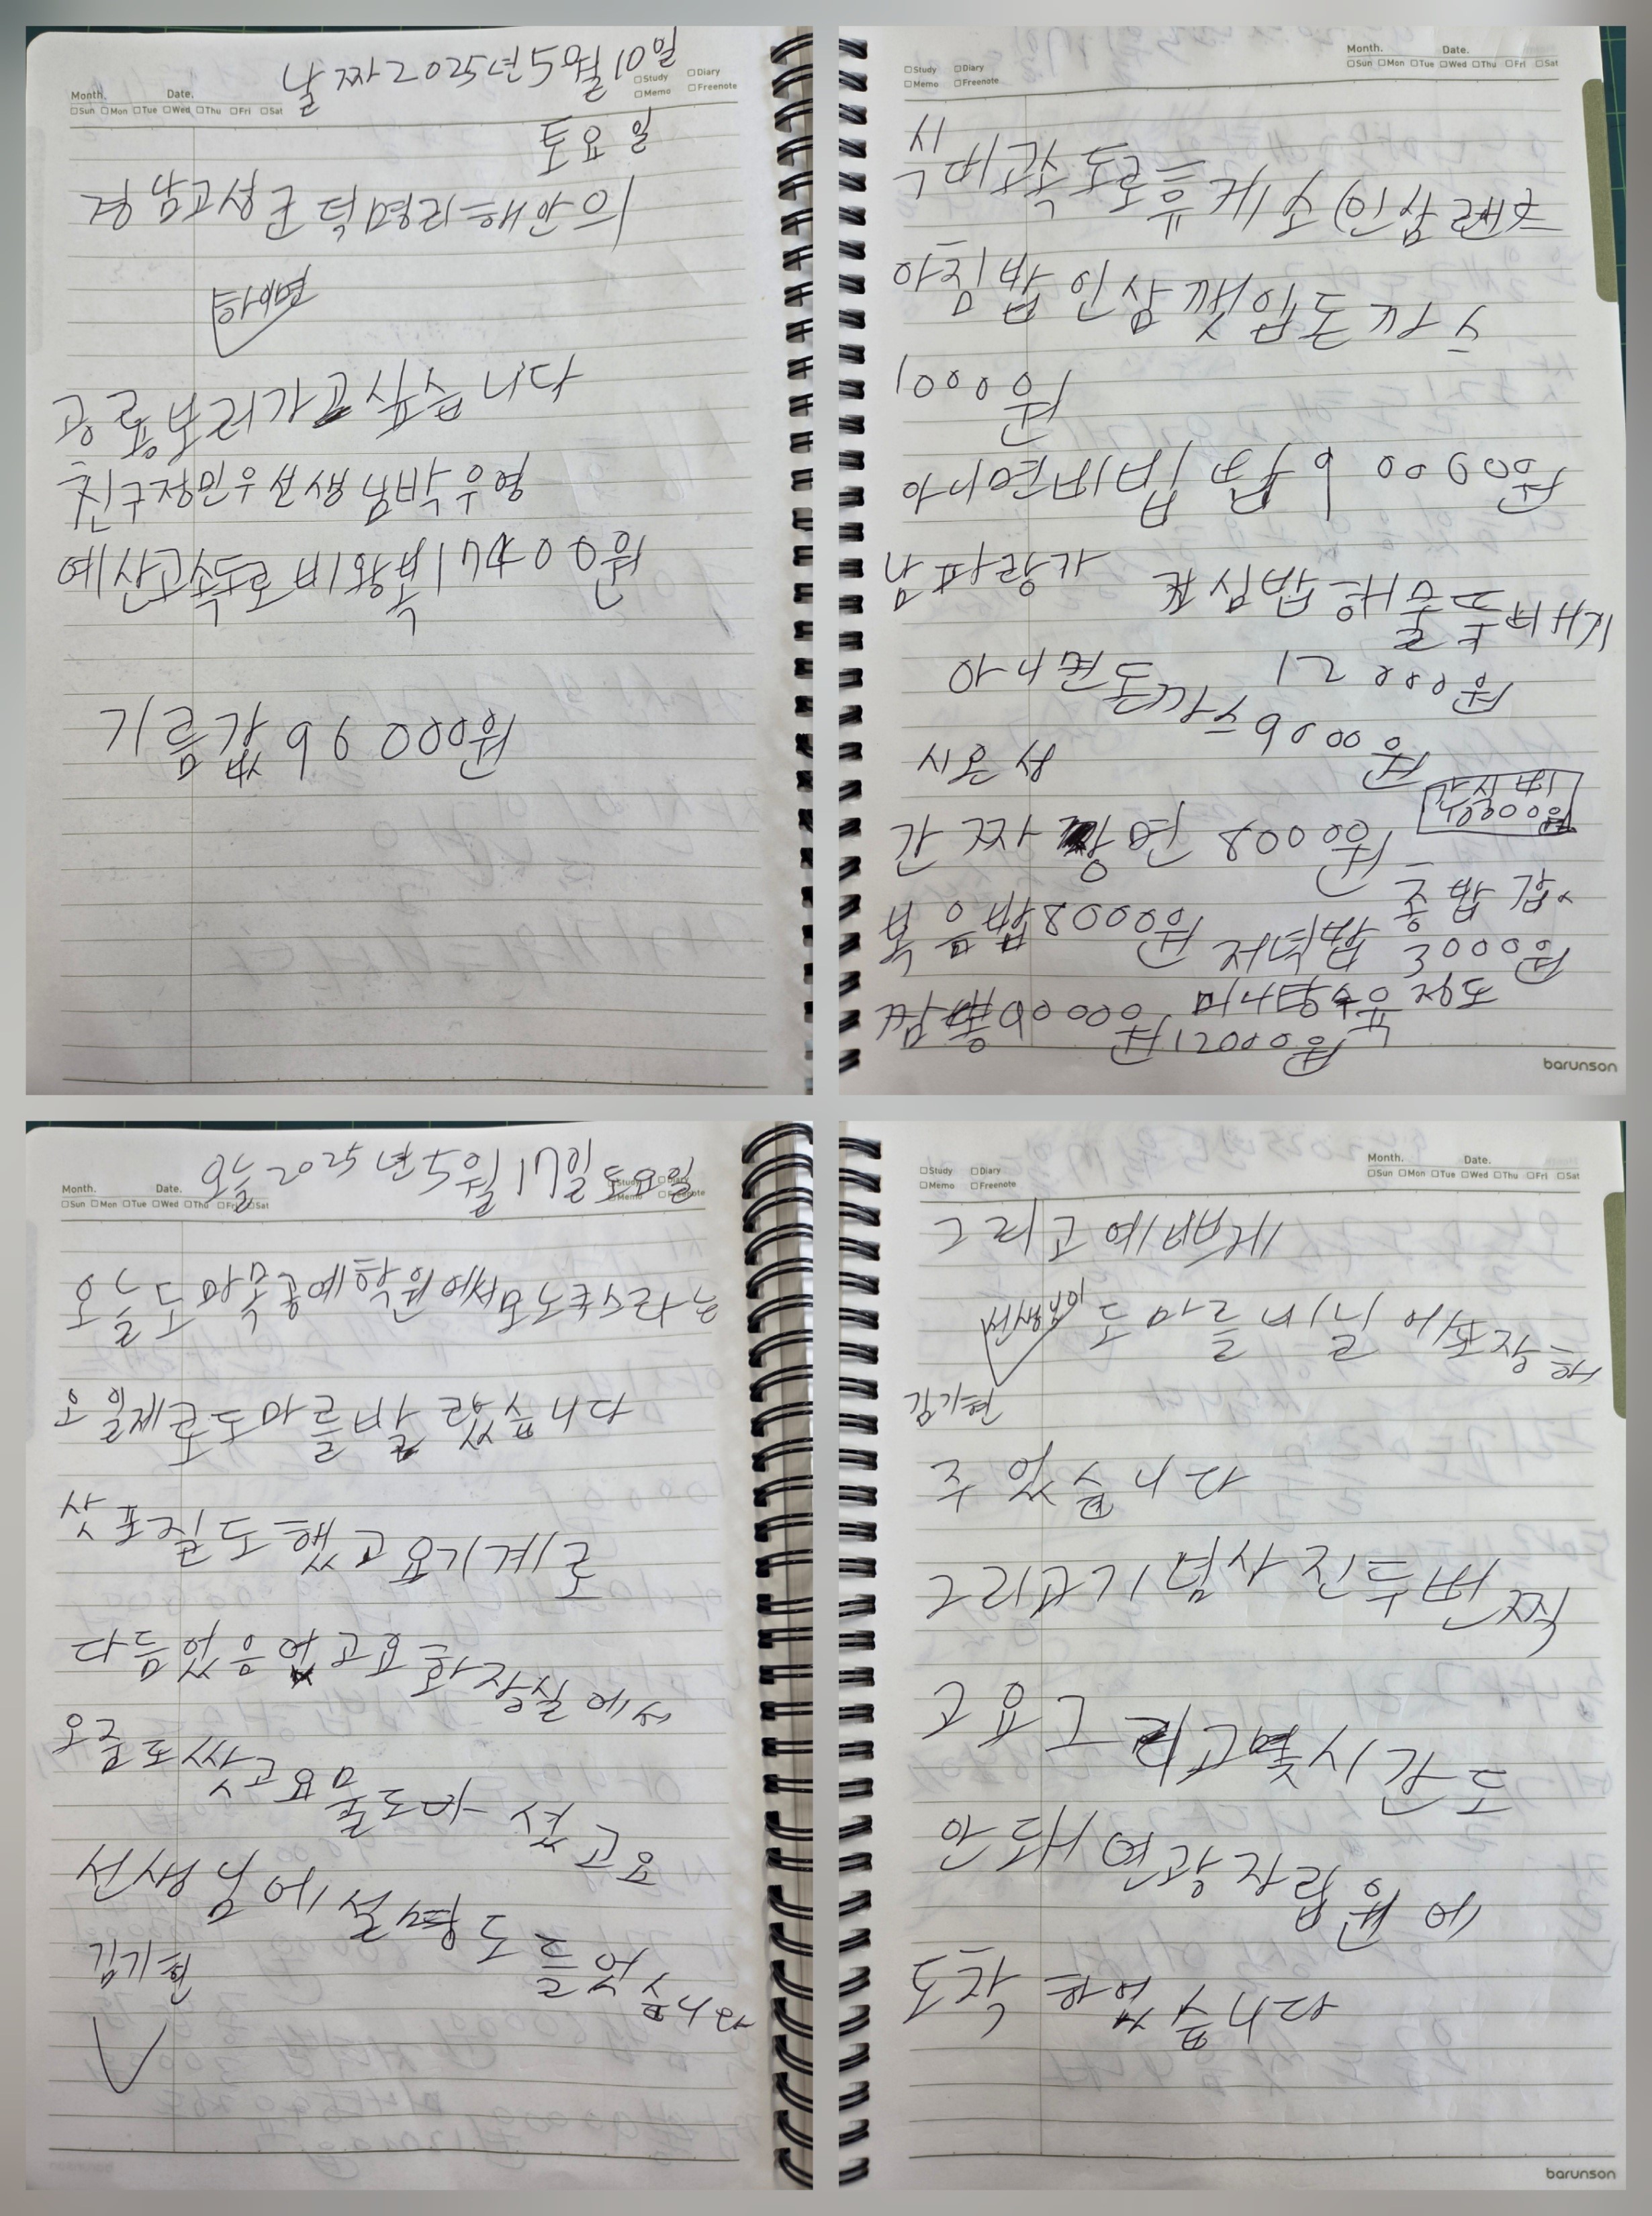 날짜2025년5월10일
Month. Date.
Sun Mon Tue Wed Thu Fri Sat
Study Diary
Memo Freenote
토요일
경남고성군덕명리해안의
하이면
공룡보러가고싶습니다
친구장민우선생님박우형
예산고속도로비왕복17400원
기름값96000원
Study Diary
Memo Freenote
Month. Date.
Sun Mon Tue Wed Thu Fri Sat
식비고속도로휴게소(인삼랜드
아침밥인삼깻입돈까스
10000원
아니면비빔밥 9000원
남파랑가 점심밥해물뚝배기
아니면돈까스9000원 12000원
시온성
간식비
간짜장면 8000원
총밥값
볶음밥8000원 저녁밥 30000원
짬뽕10000원 아니면 정도
12000원
barunson
오늘2025년5월17일토요일
Month. Date.
Sun Mon Tue Wed Thu Fri Sat
Study Diary
Memo Freenote
오늘도마목공예학원에서모노코스라는
오일제로도마를발랐습니다
삿포질도했고요기계로
다듬었음었고요화장실에서
오줌도쌋고요물도마셨고요
선생님에설명도들었습니다
김기현
Study Diary
Memo Freenote
Month. Date.
Sun Mon Tue Wed Thu Fri Sat
그리고예쁘게
선생님이 도마를비닐에포장해
김기현
주었습니다
그리고기념사진두번찍
고요그리고몇시간도
안돼연광장립원에
도착하였습니다
barunson